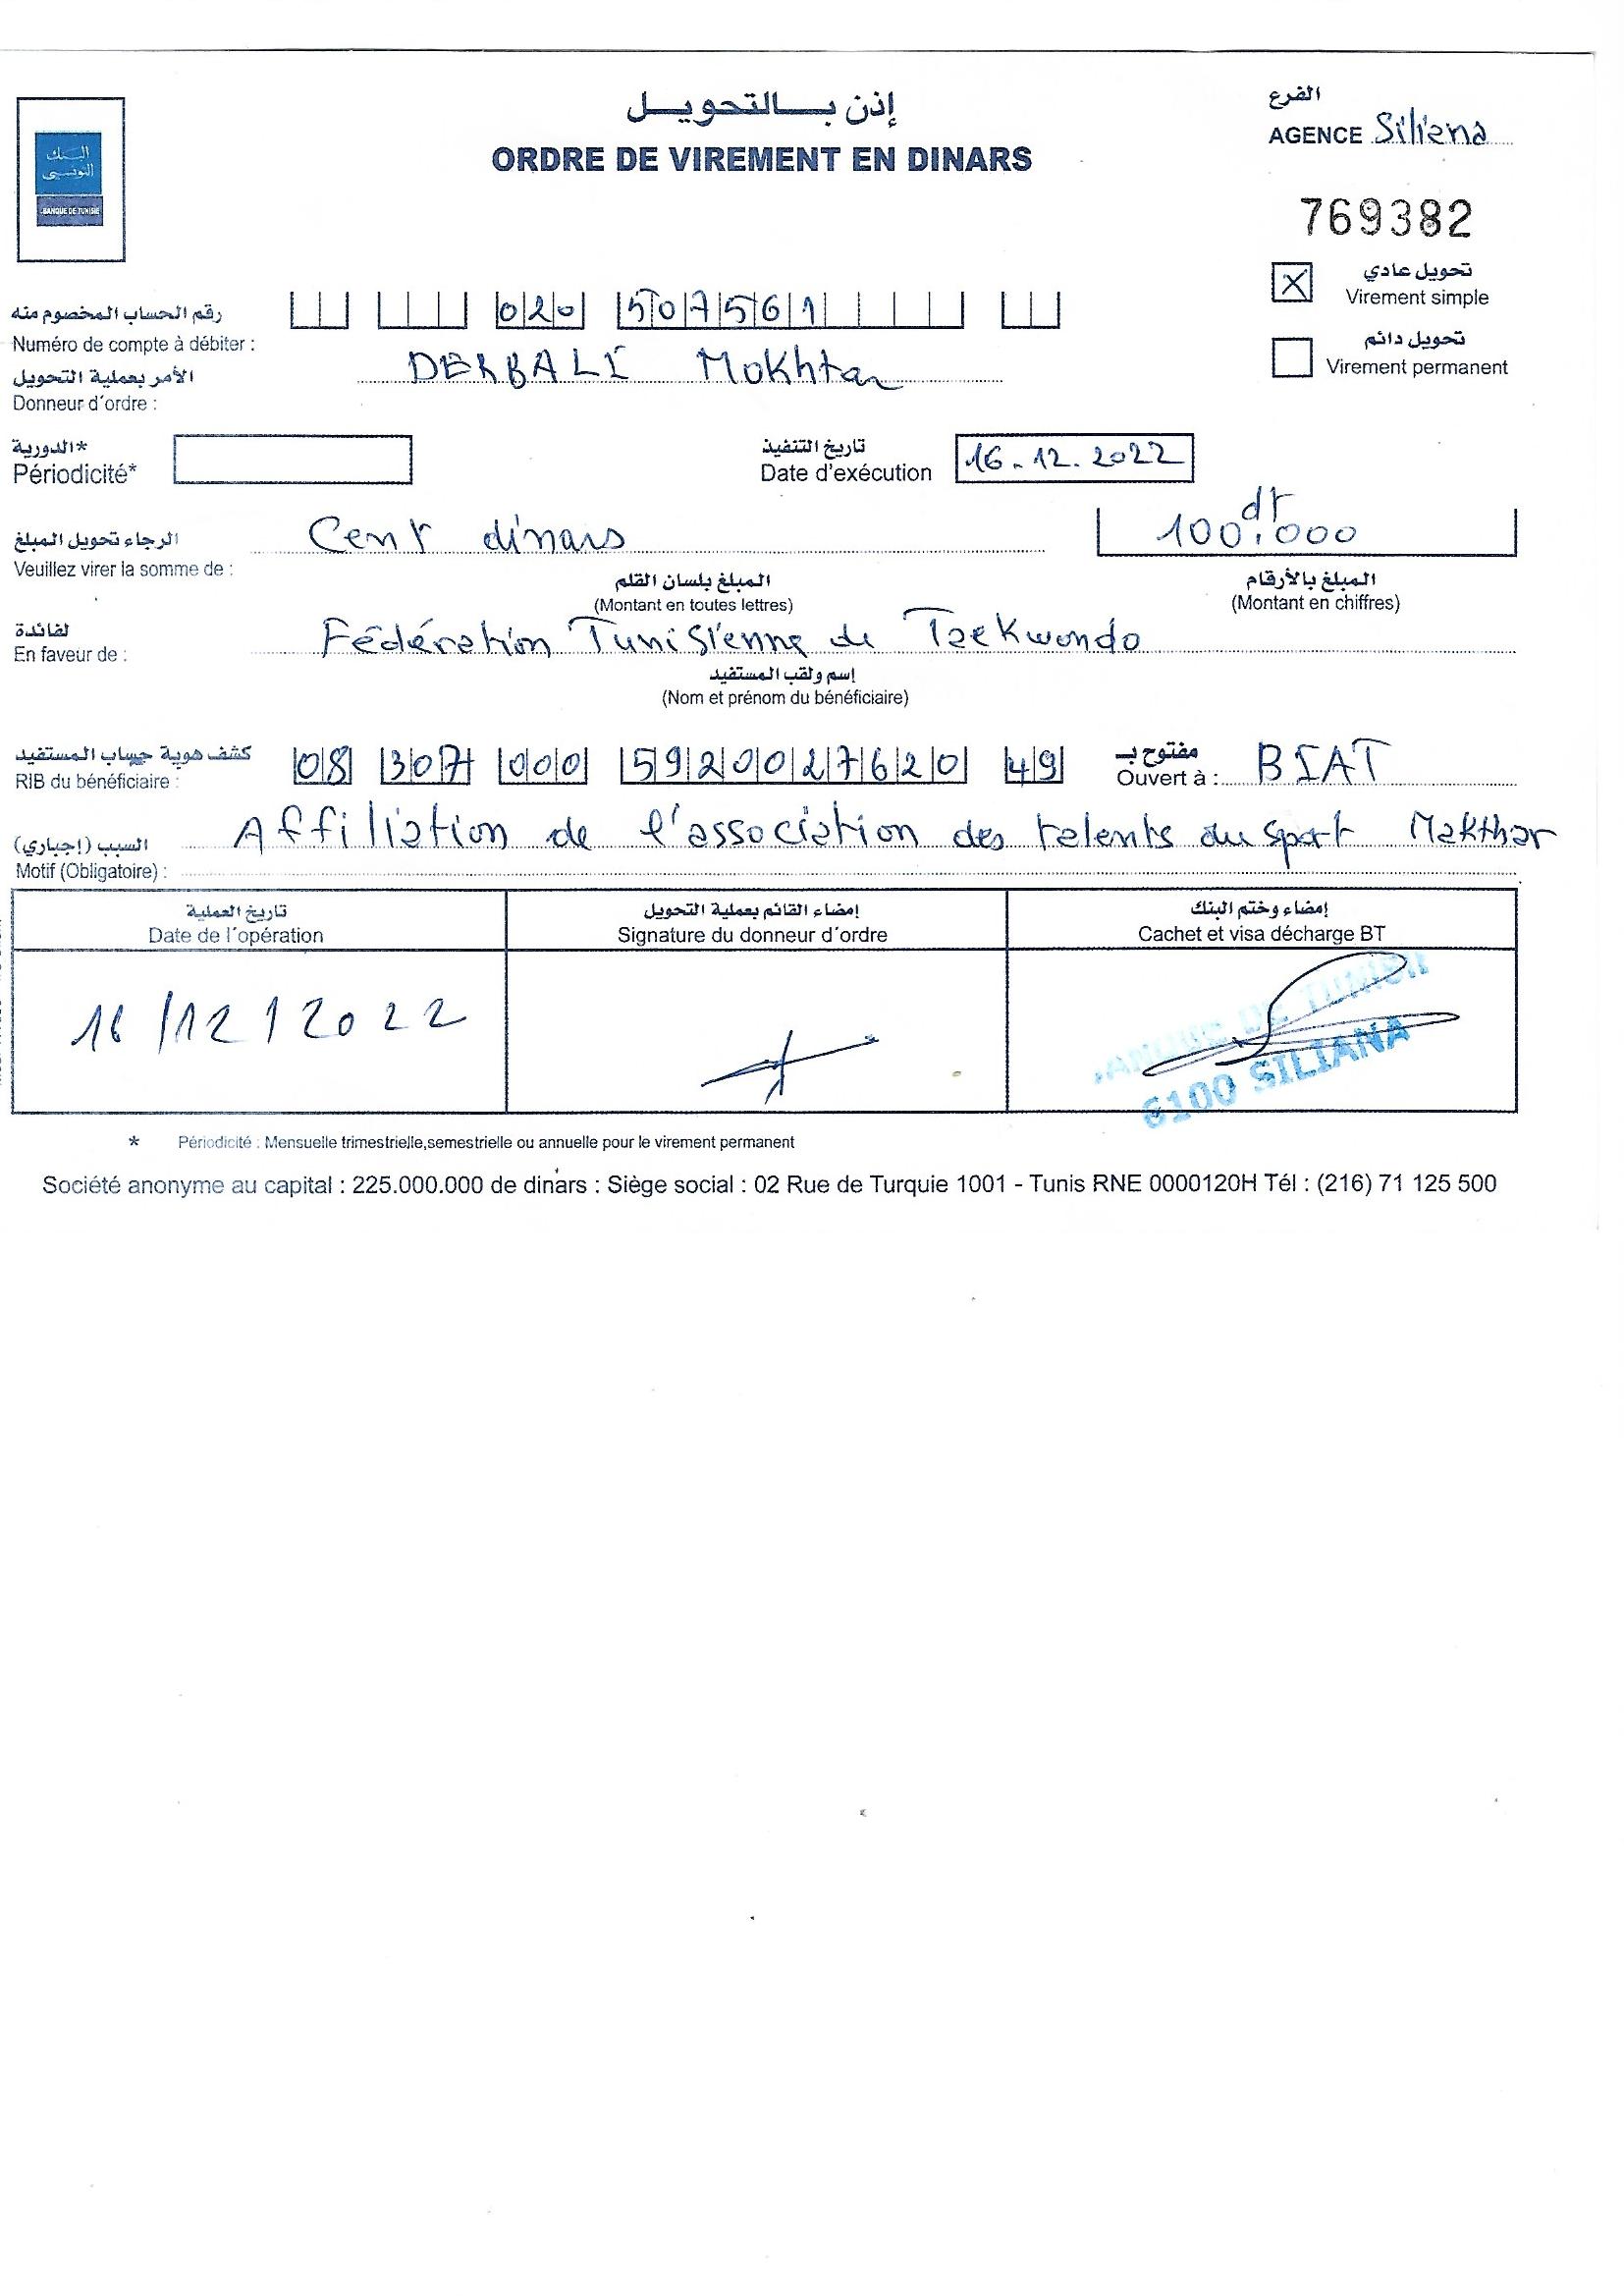 البنك
التونسي
BANQUE DE TUNISIE
إذن بـــالتحويـــل
ORDRE DE VIREMENT EN DINARS
الفرع
AGENCE Siliana
769382
تحويل عادي
X Virement simple
تحويل دائم
Virement permanent
رقم الحساب المخصوم منه
Numéro de compte à débiter : 020 507561
الأمر بعملية التحويل
Donneur d'ordre : DERBALI Mokhtar
الدورية*
Périodicité*
تاريخ التنفيذ
Date d'exécution 16.12.2022
الرجاء تحويل المبلغ
Veuillez virer la somme de : Cent dinars
100.dt000
المبلغ بلسان القلم
(Montant en toutes lettres)
المبلغ بالأرقام
(Montant en chiffres)
لفائدة
En faveur de : Fédération Tunisienne de Taekwondo
إسم ولقب المستفيد
(Nom et prénom du bénéficiaire)
كشف هوية حساب المستفيد
RIB du bénéficiaire : 08 307 000 5920027620 49
مفتوح بـ
Ouvert à : BIAT
السبب (إجباري)
Motif (Obligatoire) : Affiliation de l'association des talents du sport Makthar
تاريخ العملية
Date de l'opération
إمضاء القائم بعملية التحويل
Signature du donneur d'ordre
إمضاء وختم البنك
Cachet et visa décharge BT
16/12/2022
6100 SILIANA
* Périodicité : Mensuelle trimestrielle,semestrielle ou annuelle pour le virement permanent
Société anonyme au capital : 225.000.000 de dinars : Siège social : 02 Rue de Turquie 1001 - Tunis RNE 0000120H Tél : (216) 71 125 500